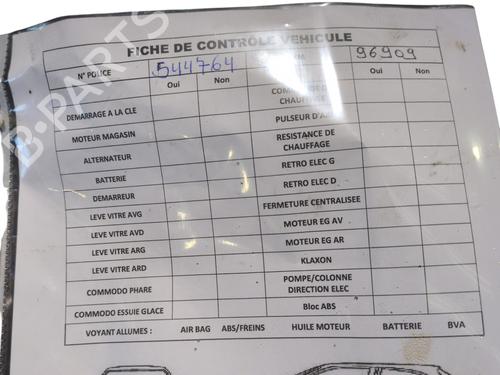 FICHE DE CONTRÔLE VEHICULE
N° POLICE 544764 96909
Oui Non Oui Non
DEMARRAGE A LA CLE
CHAUFFAGE
MOTEUR MAGASIN PULSEUR
ALTERNATEUR RESISTANCE DE CHAUFFAGE
BATTERIE RETRO ELEC G
DEMARREUR RETRO ELEC D
LEVE VITRE AVG FERMETURE CENTRALISEE
LEVE VITRE AVD MOTEUR EG AV
LEVE VITRE ARG MOTEUR EG AR
LEVE VITRE ARD KLAXON
COMMODO PHARE POMPE/COLONNE DIRECTION ELEC
COMMODO ESSUIE GLACE Bloc ABS
VOYANT ALLUMES : AIR BAG ABS/FREINS HUILE MOTEUR BATTERIE BVA
B-PARTS